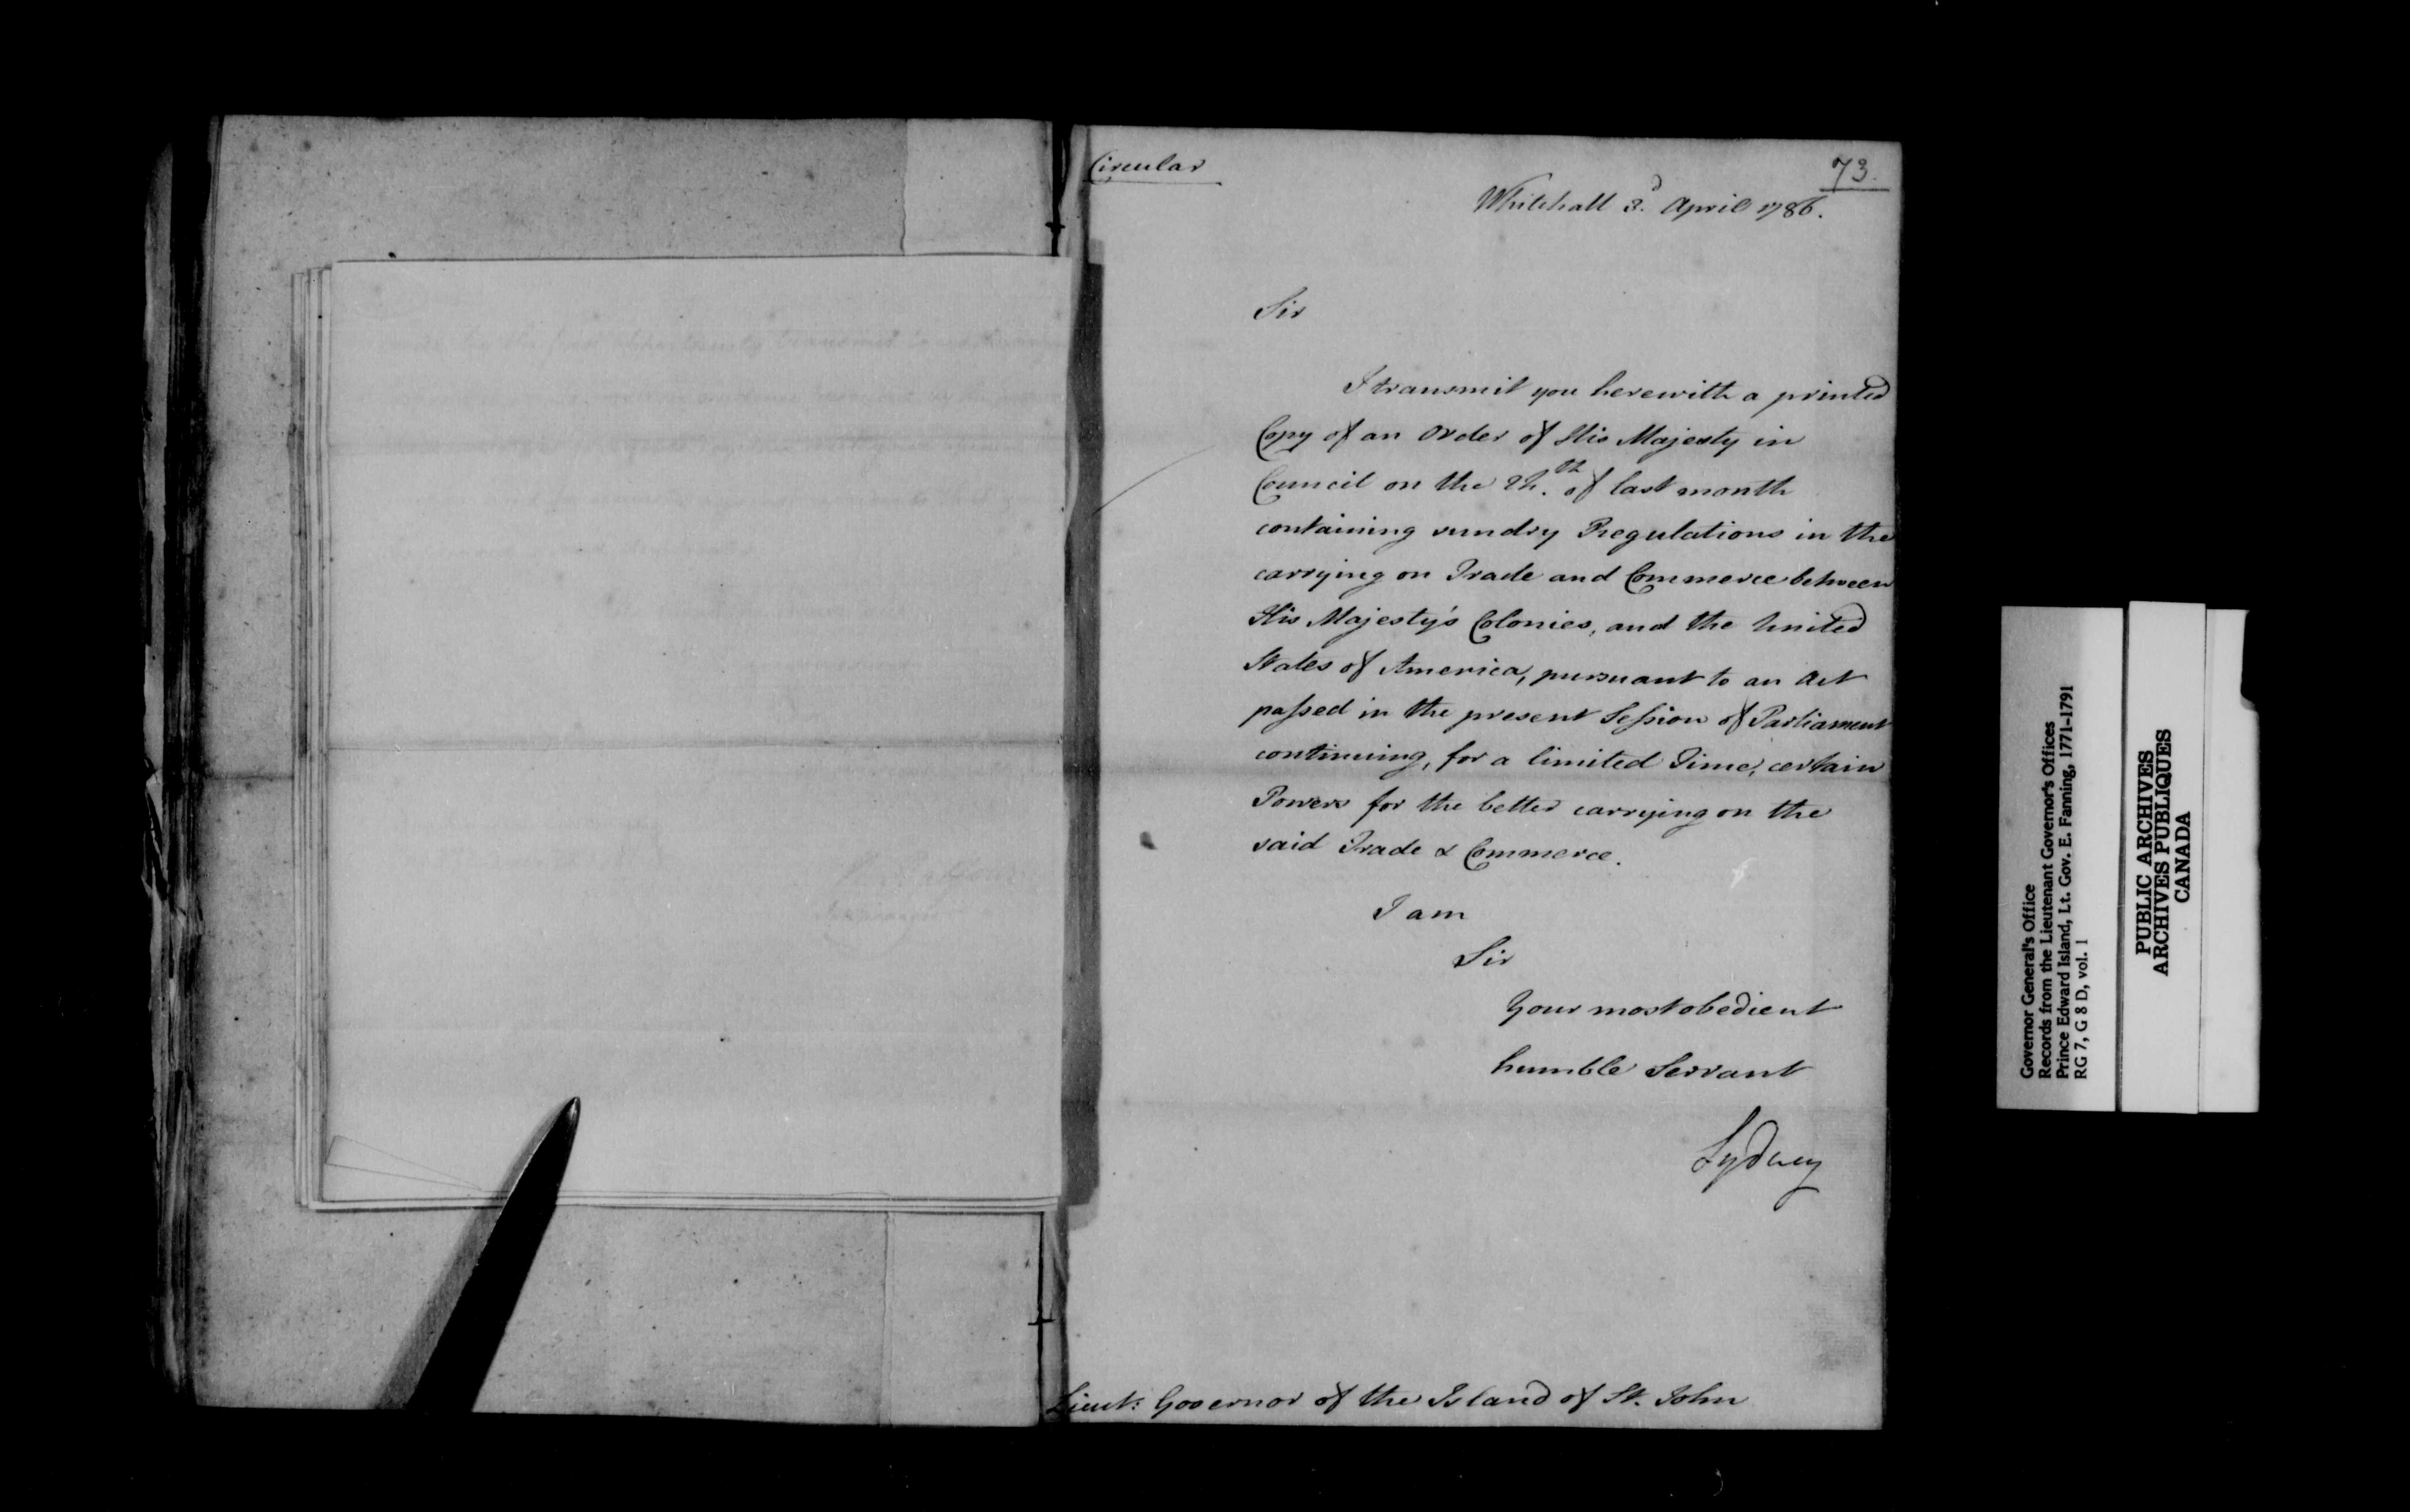 Circular
73.
Whitehall 3.d April 1786.
Sir
I transmit you herewith a printed
Copy of an Order of His Majesty in
Council on the 24.th of last month
containing sundry Regulations in the
carrying on Trade and Commerce between
His Majesty's Colonies, and the United
States of America, pursuant to an Act
passed in the present Session of Parliament
continuing, for a limited Time, certain
Powers for the better carrying on the
said Trade & Commerce.
I am
Sir
Your most obedient
humble Servant
Sydney
Lieut: Governor of the Island of St. John
Governor General's Office
Records from the Lieutenant Governor's Offices
Prince Edward Island, Lt. Gov. E. Fanning, 1771-1791
RG 7, G 8 D, vol. 1
PUBLIC ARCHIVES
ARCHIVES PUBLIQUES
CANADA